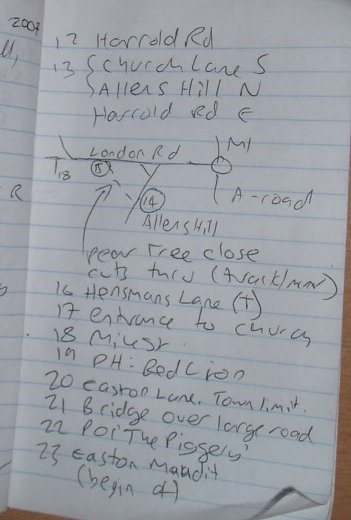 2007
12 Harrold Rd
13 { Church Lane S
Allens Hill N
Harrold Rd E
M1
London Rd
T18
15
14
A-road
Allens Hill
R
pear Tree close
cuts thru (track/
16 Hensmans Lane (T)
17 entrance to church
18 Milest.
19 PH: Red Lion
20 easton Lane. Town limit.
21 Bridge over large road
22 POI 'The Piggery'
23 Easton Maudit
(begin of)